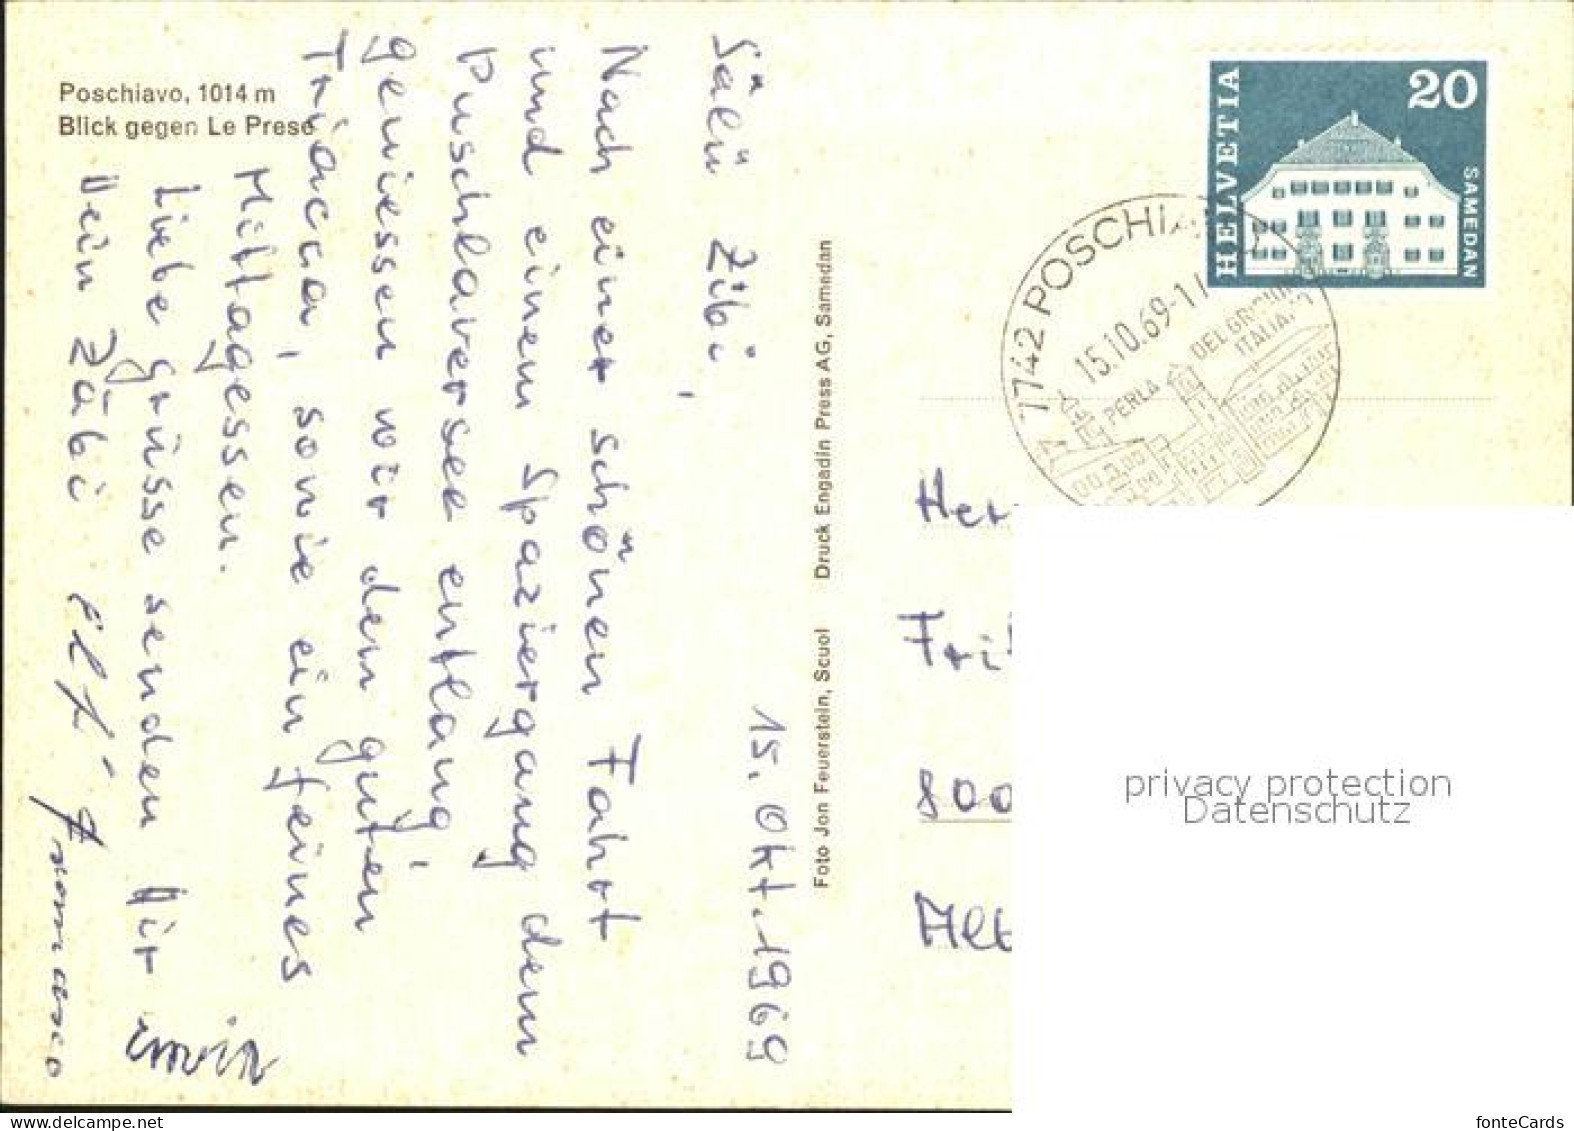 Poschiavo, 1014 m
Blick gegen Le Prese
15. Okt. 1969
Sälü Zibi,
Nach einer schönen Fahrt
und einem Spaziergang dem
Puschlaversee entlang,
geniessen wir den guten
Triacca, sowie ein feines
Mittagessen.
Liebe Grüsse senden Dir
Dein Zäbi
Foto Jon Feuerstein, Scuol Druck Engadin Press AG, Samedan
HELVETIA
20
SAMEDAN
7742 POSCHIA
15.10.69-1
PERLA
DEL GRIGIONI
ITALIANO
Her
Fri
800
Alt
privacy protection
Datenschutz
www.delcampe.net
fonteCards